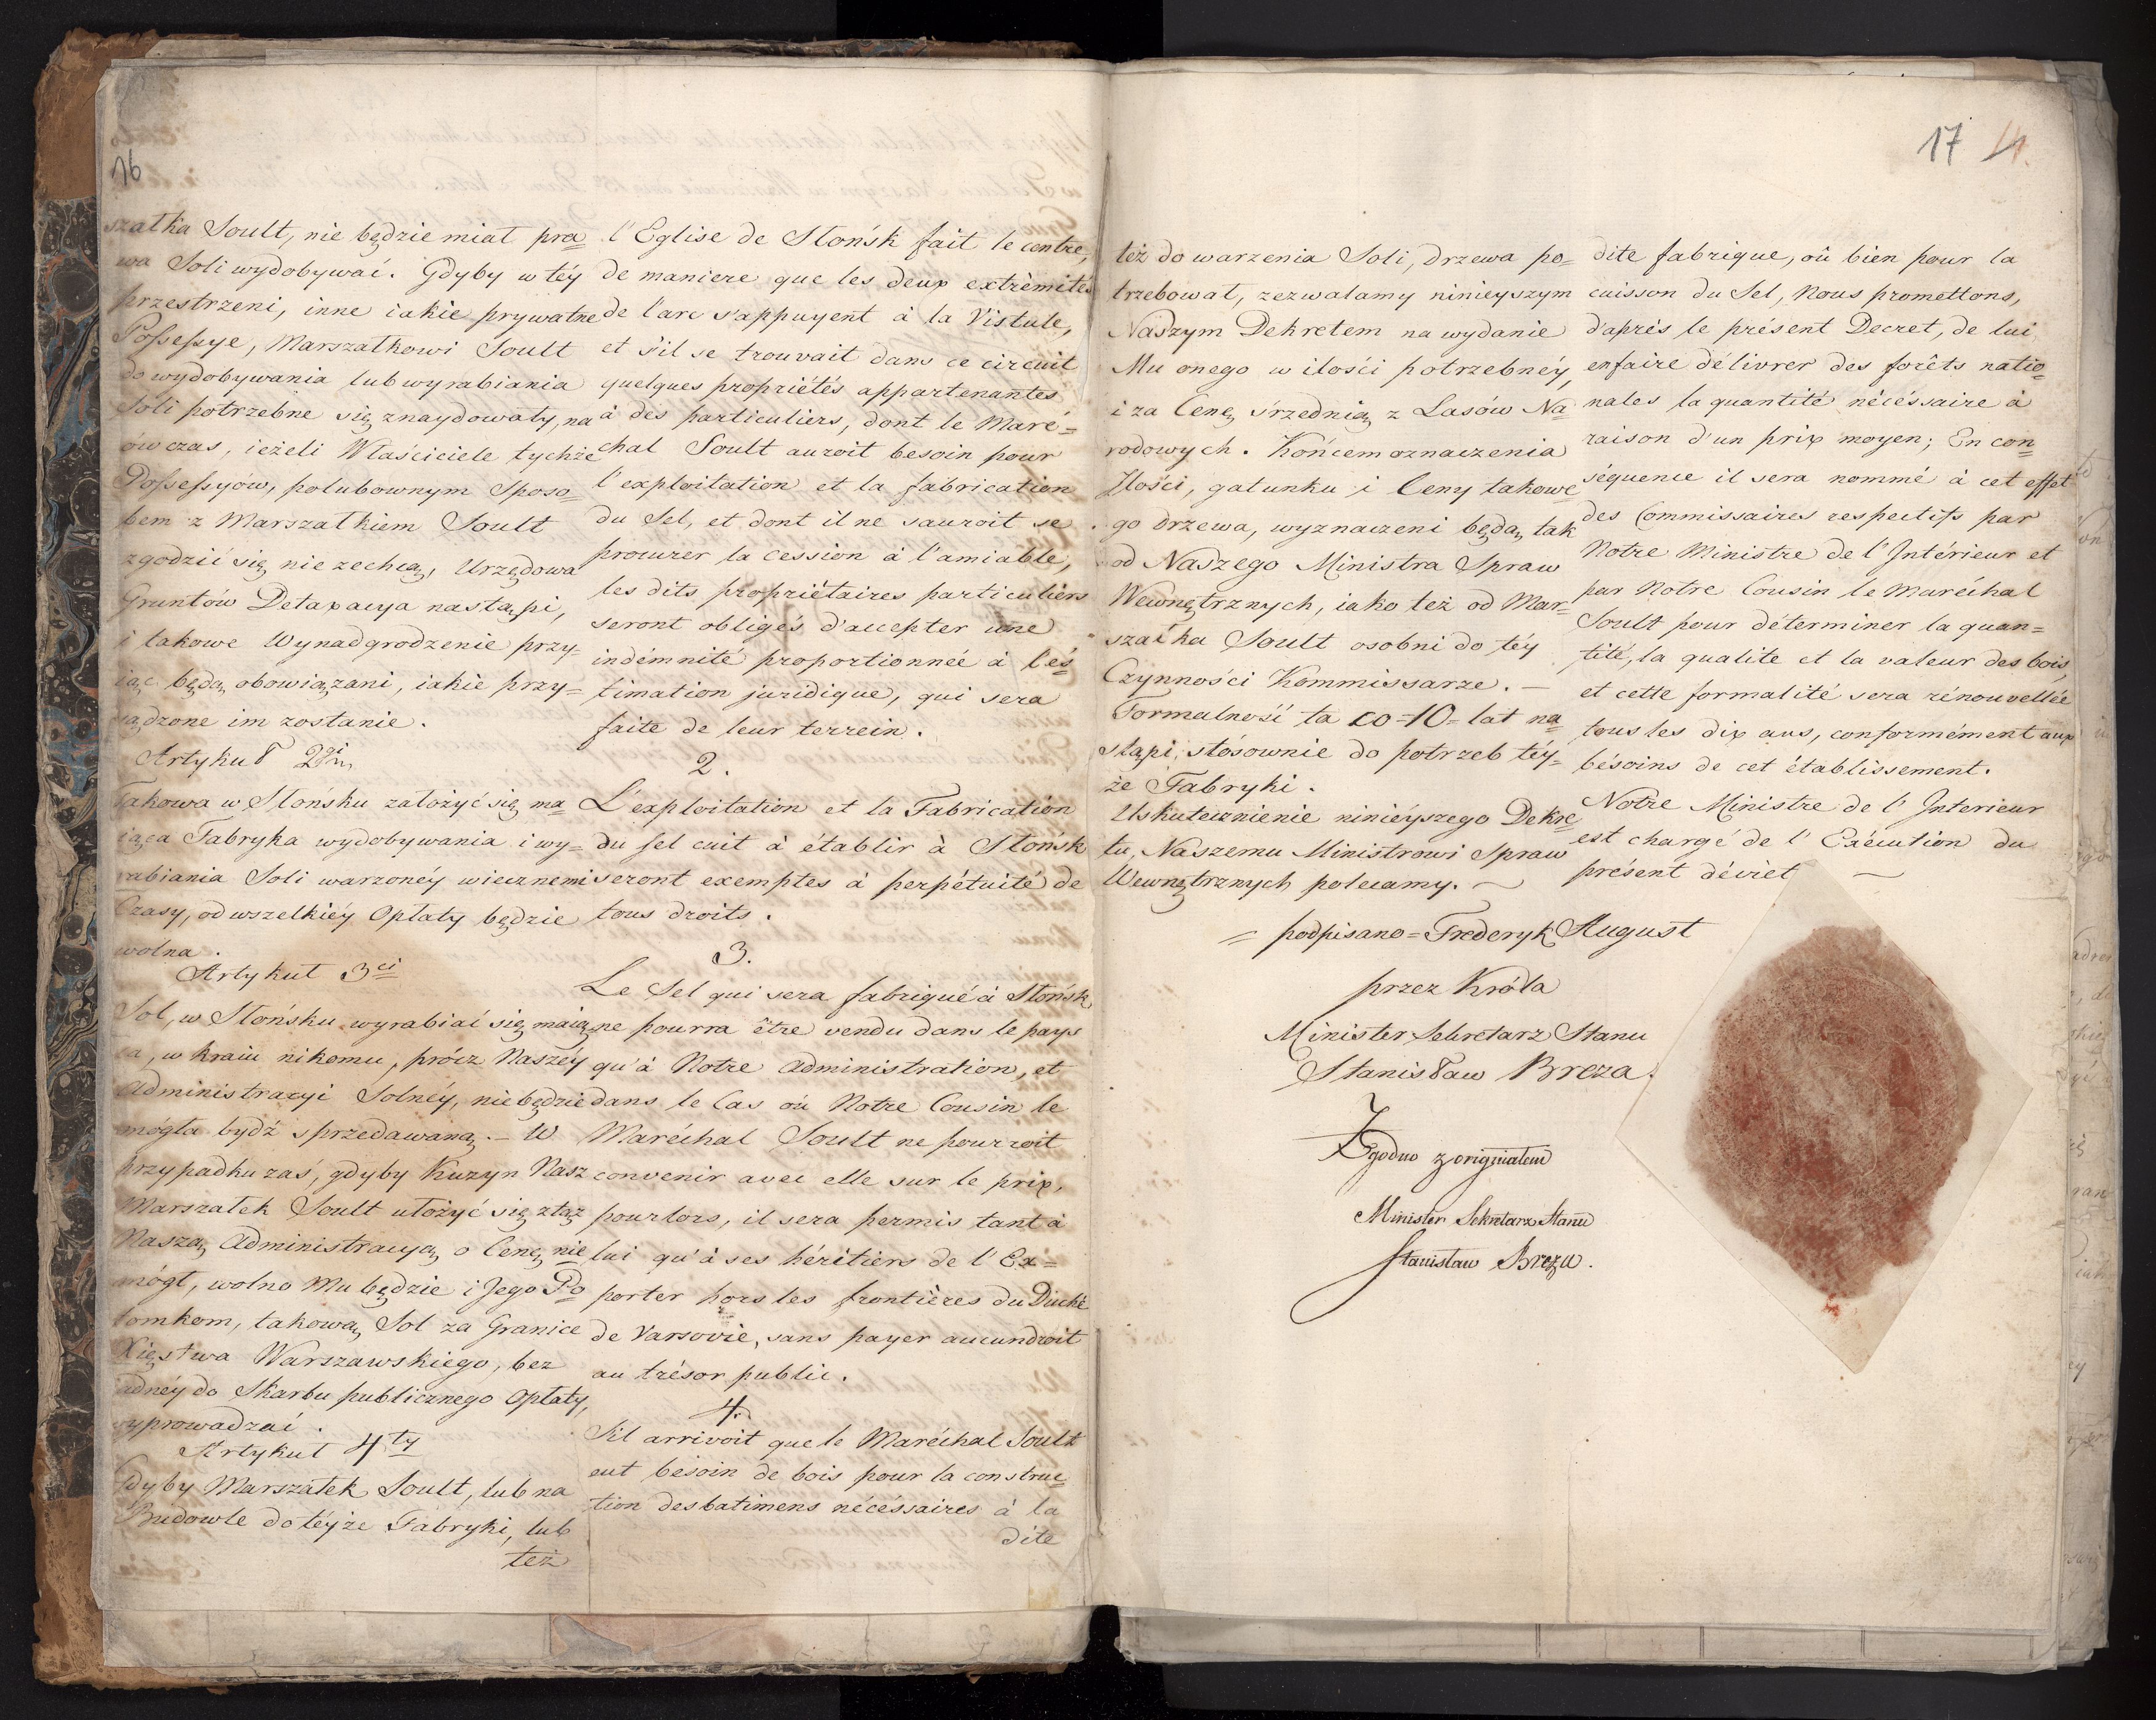 16
szałka Soult, nie będzie miał pra=
wa Soli wydobywać. Gdyby w téy
przestrzeni, inne iakie prywatne
Possessye, Marszałkowi Soult
do wydobywania lub wyrabiania
Soli potrzebne się znaydowały, na
ów czas, ieżeli Właściciele tychże
Possessyów, polubownym Sposo=
bem z Marszałkiem Soult
zgodzić się nie zechcą, Urzędowa
Gruntów Detaxacya nastąpi,
i takowe Wynadgrodzenie przy=
iąć będą obowiązani, iakie przy=
sądzone im zostanie.
Artykuł 2gi
Takowa w Słońsku założyć się ma
iąca Fabryka wydobywania i wy=
rabiania Soli warzonéy wiecznemi
Czasy, od wszelkiéy Opłaty będzie
wolna.
Artykuł 3ci
Sol, w Słońsku wyrabiać się maią
ca, w kraiu nikomu, prócz Naszéy
Administracyi Solnéy, nie będzie
mógła bydź sprzedawaną. – W
przypadku zaś, gdyby Kuzyn Nasz
Marszałek Soult ułożyć się z tąż
Naszą Administracyą o Cenę nie
mógł, wolno Mu będzie i Jego Po=
tomkom, takową Sol za Granice
Xięstwa Warszawskiego, bez
żadnéy do Skarbu publicznego Opłaty,
wyprowadzać.
Artykuł 4ty
Gdyby Marszałek Soult, lub na
Budowle do téyże Fabryki, lub
też
l'Eglise de Słońsk fait le centre,
de maniere que les deux extrèmités
de l'arc s'appuyent à la Vistule,
et s'il se trouvait dans ce circuit
quelques propriétés appartenantes
à des particuliers, dont le Maré=
chal Soult auroit besoin pour
l'exploitation et la fabrication
du Sel, et dont il ne sauroit se
procurer la cession à l'amiable,
les dits propriétaires particuliers
seront obligés d'accepter une
indémnité proportionnéé à l'és=
timation juridique, qui sera
faite de leur terrein.
2.
L'exploitation et la Fabrication
du sel cuit à établir à Słońsk
seront exemptes à perpétuité de
tous droits.
3.
Le Sel qui sera fabriqué à Słońsk,
ne pourra être vendu dans le pays
qu'à Notre Administration, et
dans le Cas où Notre Cousin le
Maréchal Soult ne pourroit
convenir avec elle sur le prix,
pourlors, il sera permis tant à
lui qu'à ses héritiers de l'Ex=
porter hors les frontières du Duché
de Varsovie, sans payer aucun droit
au trésor public.
4.
S'il arrivoit que le Maréchal Soult
eut bésoin de bois pour la construc=
tion des batimens nécéssaires à la
dite
17 14.
też do warzenia Soli, drzewa po=
trzebował, zezwalamy ninieyszym
Naszym Dekretem na wydanie
Mu onego w ilości potrzebnéy,
i za Cenę śrzednią z Lasów Na=
rodowych. Końcem oznaczenia
Ilości, gatunku i Ceny takowe=
go drzewa, wyznaczeni będą, tak
od Naszego Ministra Spraw
Wewnętrznych, iako też od Mar=
szałka Soult osobni do téy
Czynności Kommissarze. —
Formalność ta co =10= lat na=
stąpi, stósownie do potrzeb téy=
że Fabryki.
Uskutecznienie ninieyszego Dekre=
tu, Naszemu Ministrowi Spraw
Wewnętrznych polecamy. —
dite fabrique, oû bien pour la
cuisson du Sel, Nous promettons,
d'après le présent Decret, de lui
enfaire délivrer des forêts natio=
nales la quantité nécéssaire à
raison d'un prix moyen; En con=
séquence il sera nommé à cet effet
des Commissaires respectifs par
Notre Ministre de l'Intérieur et
par Notre Cousin le Maréchal
Soult pour déterminer la quan=
tité, la qualite et la valeur des bois,
et cette formalité sera rénouvellée
tous les dix ans, conformément aux
bésoins de cet établissement.
Notre Ministre de l'Interieur
est chargé de l'Exécution du
présent décret —
= podpisano = Frederyk August
przez Króla
Minister Sekretarz Stanu
Stanisław Breza.
Zgodno z originałem
Minister Sekretarz Stanu
Stanisław Breza.